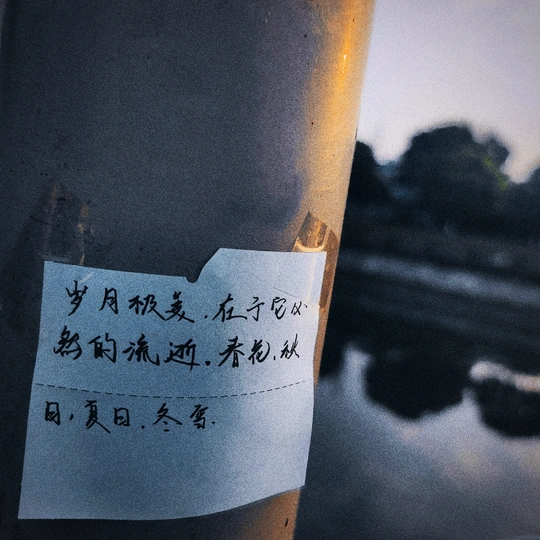 岁月极美,在于它必
然的流逝。春花、秋
日,夏日、冬雪.